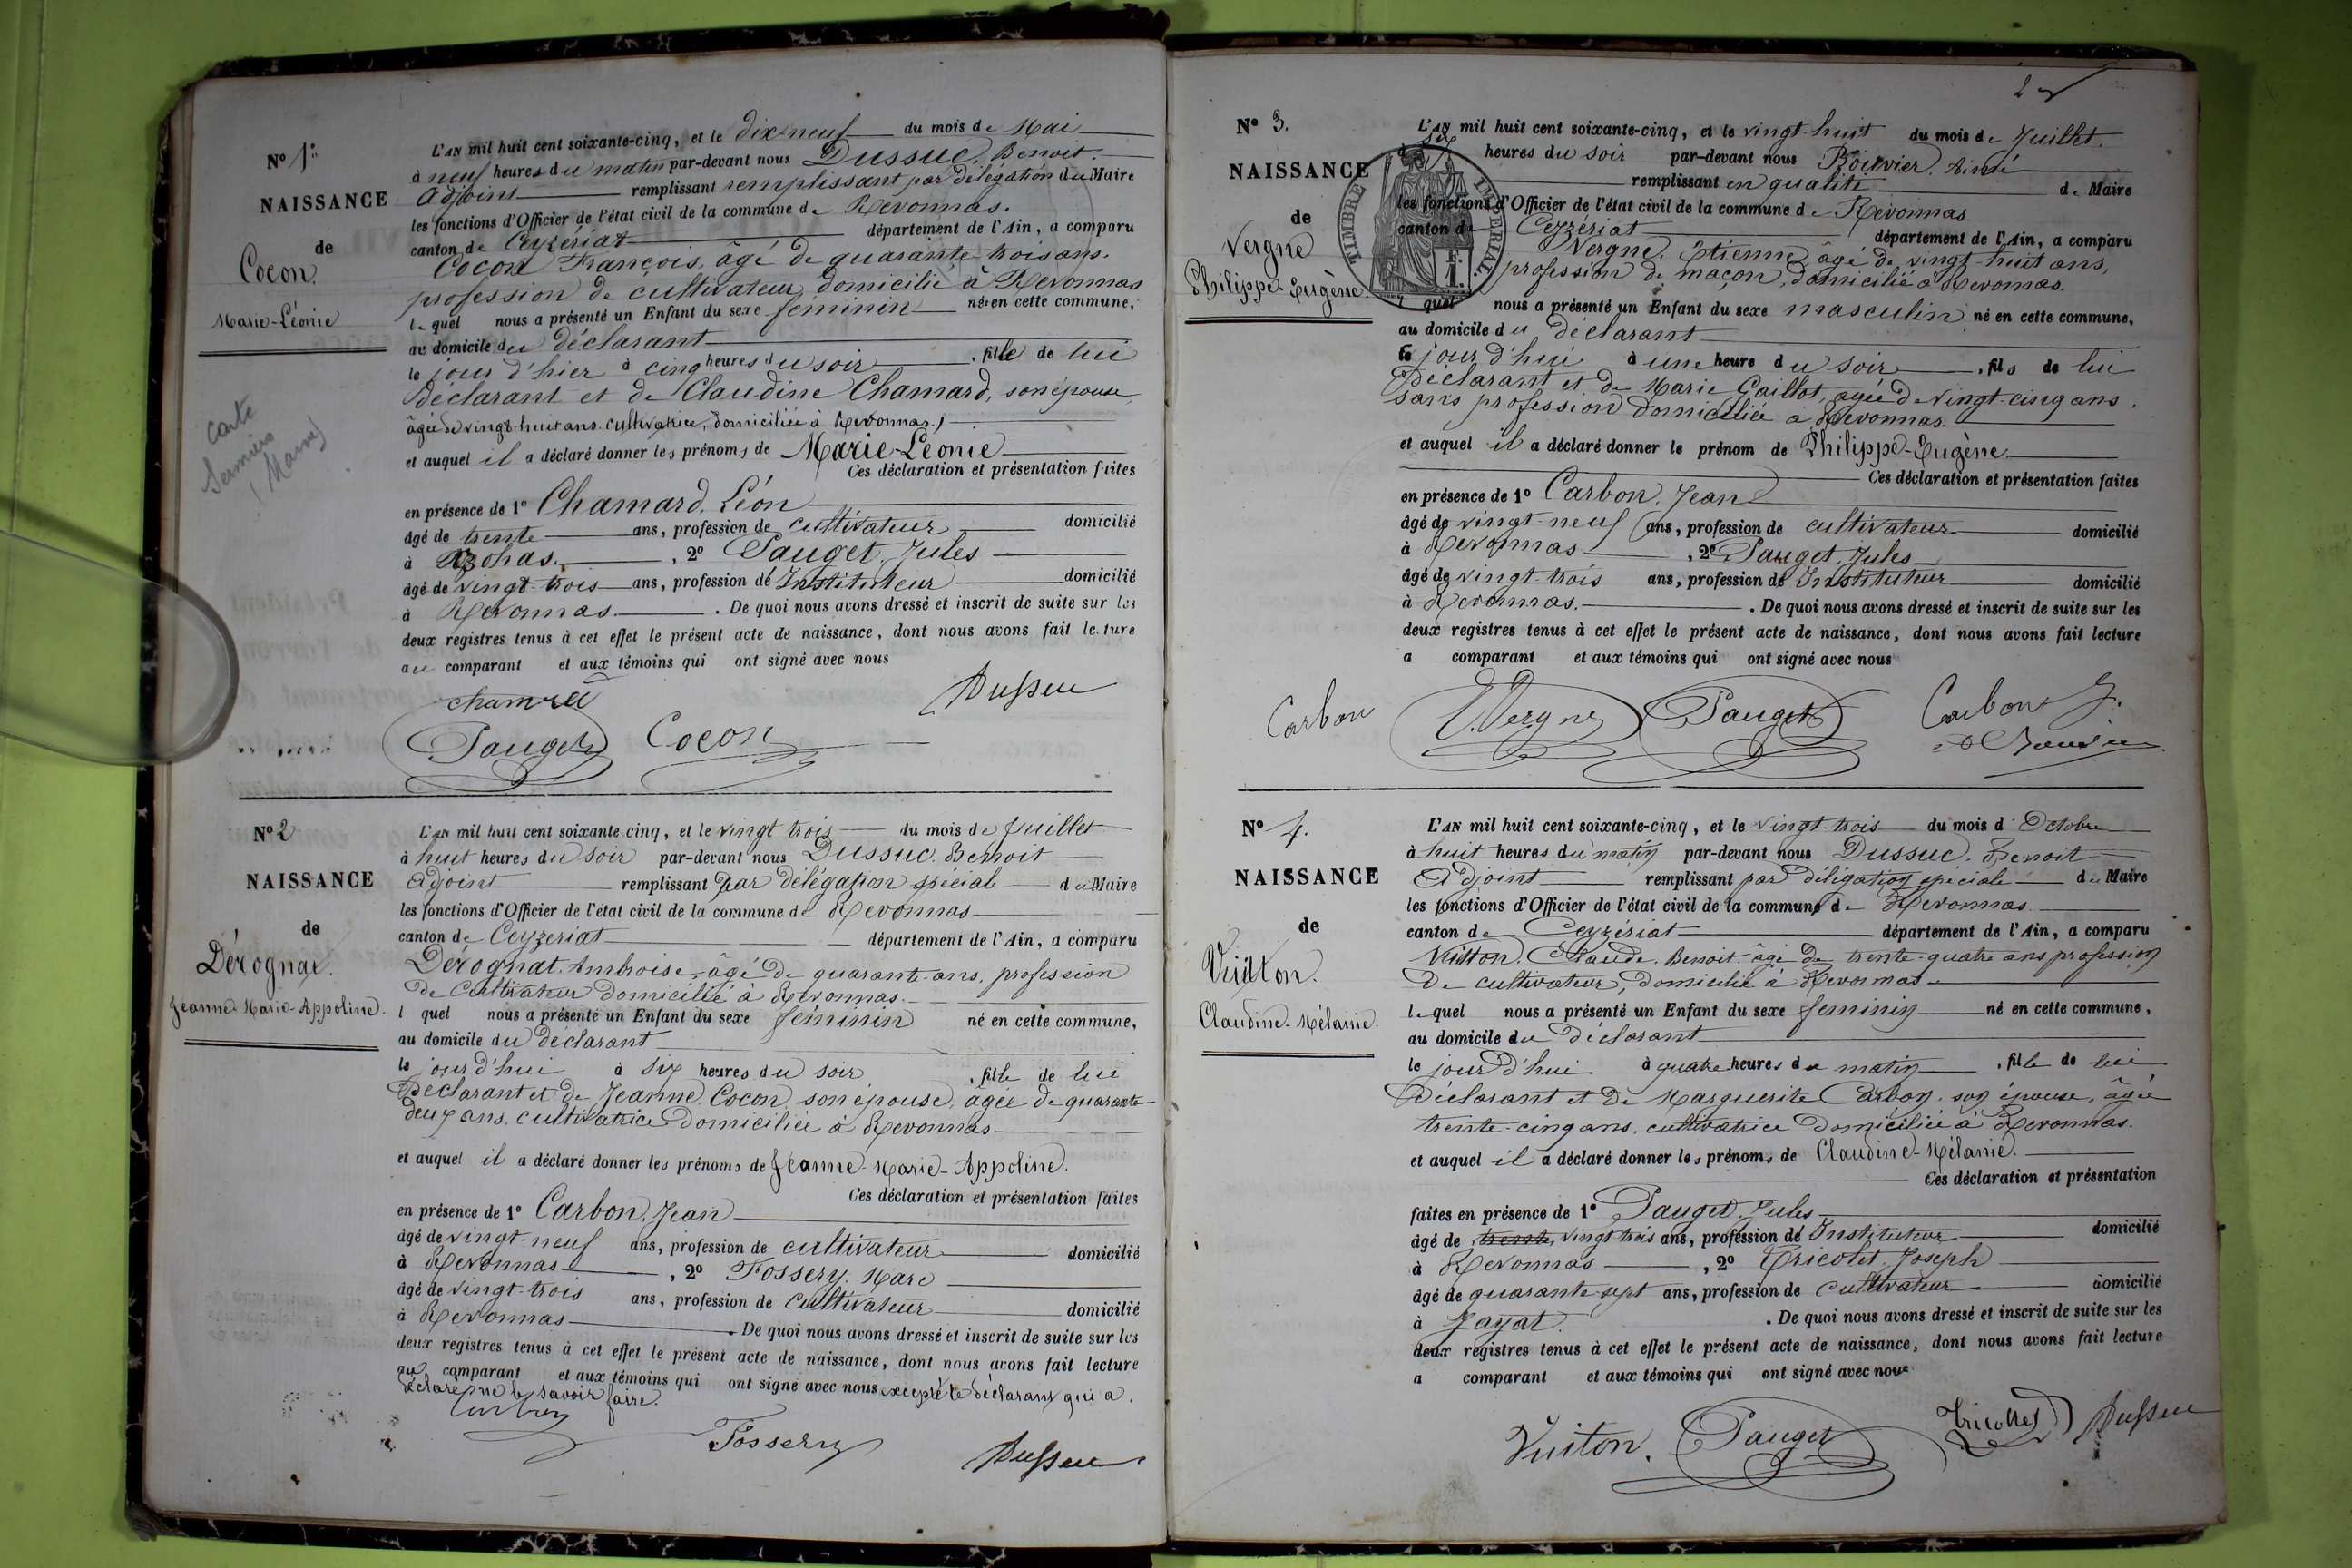 N° 1er
NAISSANCE
de
Cocon
Marie-Léonie
carte
L'AN mil huit cent soixante-cinq, et le dix-neuf du mois de Mai
à neuf heures du matin par-devant nous Dussuc, Benoit.
Adjoint remplissant remplissant par délégation du Maire
les fonctions d'Officier de l'état civil de la commune de Revonnas.
canton de Ceyzériat département de l'Ain, a comparu
Cocon François, âgé de quarante-trois ans.
profession de cultivateur, domicilié à Revonnas
le quel nous a présenté un Enfant du sexe féminin né en cette commune,
au domicile du déclarant
le jour d'hier à cinq heures du soir, fille de lui
déclarant et de Claudine Chamard, son épouse,
âgée de vingt-huit ans. cultivatrice, domiciliée à Revonnas.
et auquel il a déclaré donner les prénoms de Marie-Léonie
Ces déclaration et présentation faites
en présence de 1° Chamard, Léon
âgé de trente ans, profession de cultivateur domicilié
à Bohas. , 2° Pauget, Jules
âgé de vingt-trois ans, profession de Instituteur domicilié
à Revonnas. . De quoi nous avons dressé et inscrit de suite sur les
deux registres tenus à cet effet le présent acte de naissance, dont nous avons fait lecture
au comparant et aux témoins qui ont signé avec nous
Dussuc
Pauget Cocon
N° 2
NAISSANCE
de
Dérognat.
Jeanne-Marie-Appoline.
L'AN mil huit cent soixante-cinq, et le vingt trois du mois de Juillet
à huit heures du soir par-devant nous Dussuc. Benoit
Adjoint remplissant par délégation spéciale du Maire
les fonctions d'Officier de l'état civil de la commune de Revonnas
canton de Ceyzeriat département de l'Ain, a comparu
Dérognat. Ambroise, âgé de quarante-ans, profession
de cultivateur domicilié à Revonnas.
l quel nous a présenté un Enfant du sexe féminin né en cette commune,
au domicile du déclarant
le jour d'hui à six heures du soir , fille de lui
Déclarant et de Jeanne Cocon, son épouse, âgée de quarante-
deux ans, cultivatrice domiciliée à Revonnas
et auquel il a déclaré donner les prénoms de Jeanne-Marie-Appoline.
Ces déclaration et présentation faites
en présence de 1° Carbon, Jean
âgé de vingt-neuf ans, profession de cultivateur domicilié
à Revonnas , 2° Fossery. Marc
âgé de vingt-trois ans, profession de cultivateur domicilié
à Revonnas . De quoi nous avons dressé et inscrit de suite sur les
deux registres tenus à cet effet le présent acte de naissance, dont nous avons fait lecture
au comparant et aux témoins qui ont signé avec nous excepté le déclarant qui a
déclaré ne le savoir faire.
Fossery
Dussuc
2
N° 3.
NAISSANCE
de
Vergne
Philippe-Eugène.
TIMBRE IMPERIAL
L'AN mil huit cent soixante-cinq, et le vingt-huit du mois de Juillet.
à six heures du soir par-devant nous Bouvier, Aimé
remplissant en qualité de Maire
les fonctions d'Officier de l'état civil de la commune de Revonnas
canton de Ceyzériat département de l'Ain, a comparu
Vergne, Etienne, âgé de vingt-huit ans,
profession de maçon, domicilié à Revonnas.
l quel nous a présenté un Enfant du sexe masculin né en cette commune,
au domicile du déclarant
le jour d'hui à une heure du soir , fils de lui
Déclarant et de Marie Gaillot, agée de vingt-cinq ans,
sans profession domiciliée à Revonnas.
et auquel il a déclaré donner le prénom de Philippe-Eugène
Ces déclaration et présentation faites
en présence de 1° Carbon, Jean
âgé de vingt-neuf ans, profession de cultivateur domicilié
à Revonnas , 2° Pauget, Jules
âgé de vingt-trois ans, profession de Instituteur domicilié
à Revonnas. . De quoi nous avons dressé et inscrit de suite sur les
deux registres tenus à cet effet le présent acte de naissance, dont nous avons fait lecture
a comparant et aux témoins qui ont signé avec nous
Carbon E. Vergne Pauget Carbon J.
N° 4.
NAISSANCE
de
Vuiton.
Claudine-Mélanie.
L'AN mil huit cent soixante-cinq, et le vingt-trois du mois d Octobre
à huit heures du matin par-devant nous Dussuc, Benoit
Adjoint remplissant par déligation spéciale du Maire
les fonctions d'Officier de l'état civil de la commune de Revonnas
canton de Ceyzériat département de l'Ain, a comparu
Vuitton, Claude. Benoit âgé de trente-quatre ans profession
de cultivateur, domicilié à Revonnas
le quel nous a présenté un Enfant du sexe féminin né en cette commune,
au domicile du déclarant
le jour d'hui à quatre heures du matin , fille de lui
Déclarant et de Marguerite Carbon, son épouse, âgée
trente-cinq ans, cultivatrice domiciliée à Revonnas.
et auquel il a déclaré donner les prénoms de Claudine-Mélanie.
Ces déclaration et présentation
faites en présence de 1° Pauget, Jules
âgé de trente, vingt trois ans, profession de Instituteur domicilié
à Revonnas , 2° Tricolet, Joseph
âgé de quarante-sept ans, profession de cultivateur domicilié
à Jayat. . De quoi nous avons dressé et inscrit de suite sur les
deux registres tenus à cet effet le présent acte de naissance, dont nous avons fait lecture
a comparant et aux témoins qui ont signé avec nous
Vuiton. Pauget Dussuc